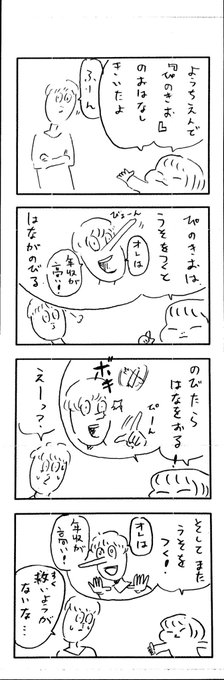 ようちえんで
『ぴのきお』
のおはなし
きいたよ
ふーん
ぴのきおは
うそをつくと
はながのびる
びょーん
オレは
年収が
高い!
のびたら
はなをおる!
ボキ
ぴーん
えーっ?
そしてまた
うそを
つく!
オレは
年収が
高い!
救いようが
ないな…